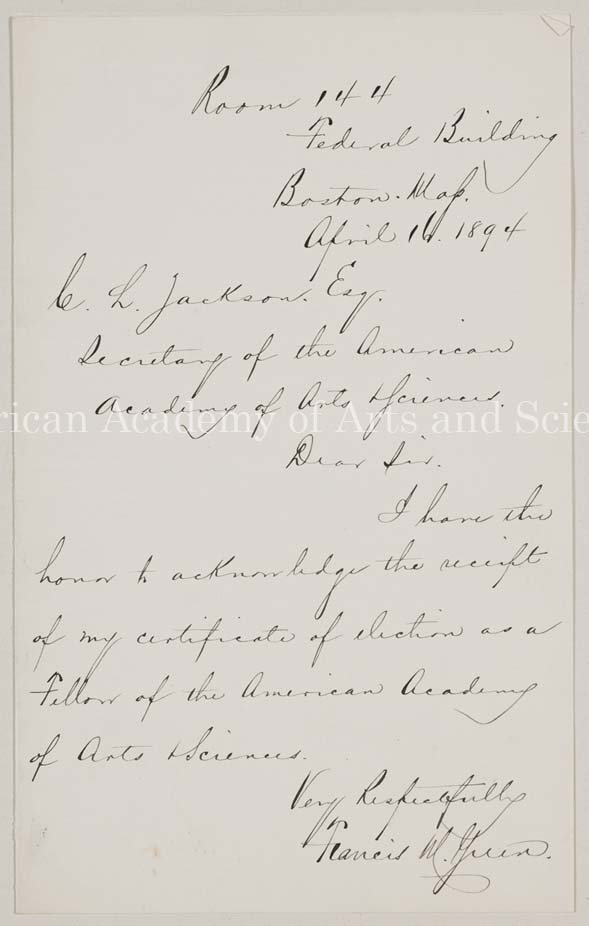 Room 144
Federal Building
Boston. Mass.
April 16. 1894
C. L. Jackson. Esq.
Secretary of the American
Academy of Arts & Sciences.
rican Academy of Arts and Scie
Dear Sir.
I have the
honor to acknowledge the receipt
of my certificate of election as a
Fellow of the American Academy
of Arts & Sciences.
Very Respectfully
Francis M. Green.